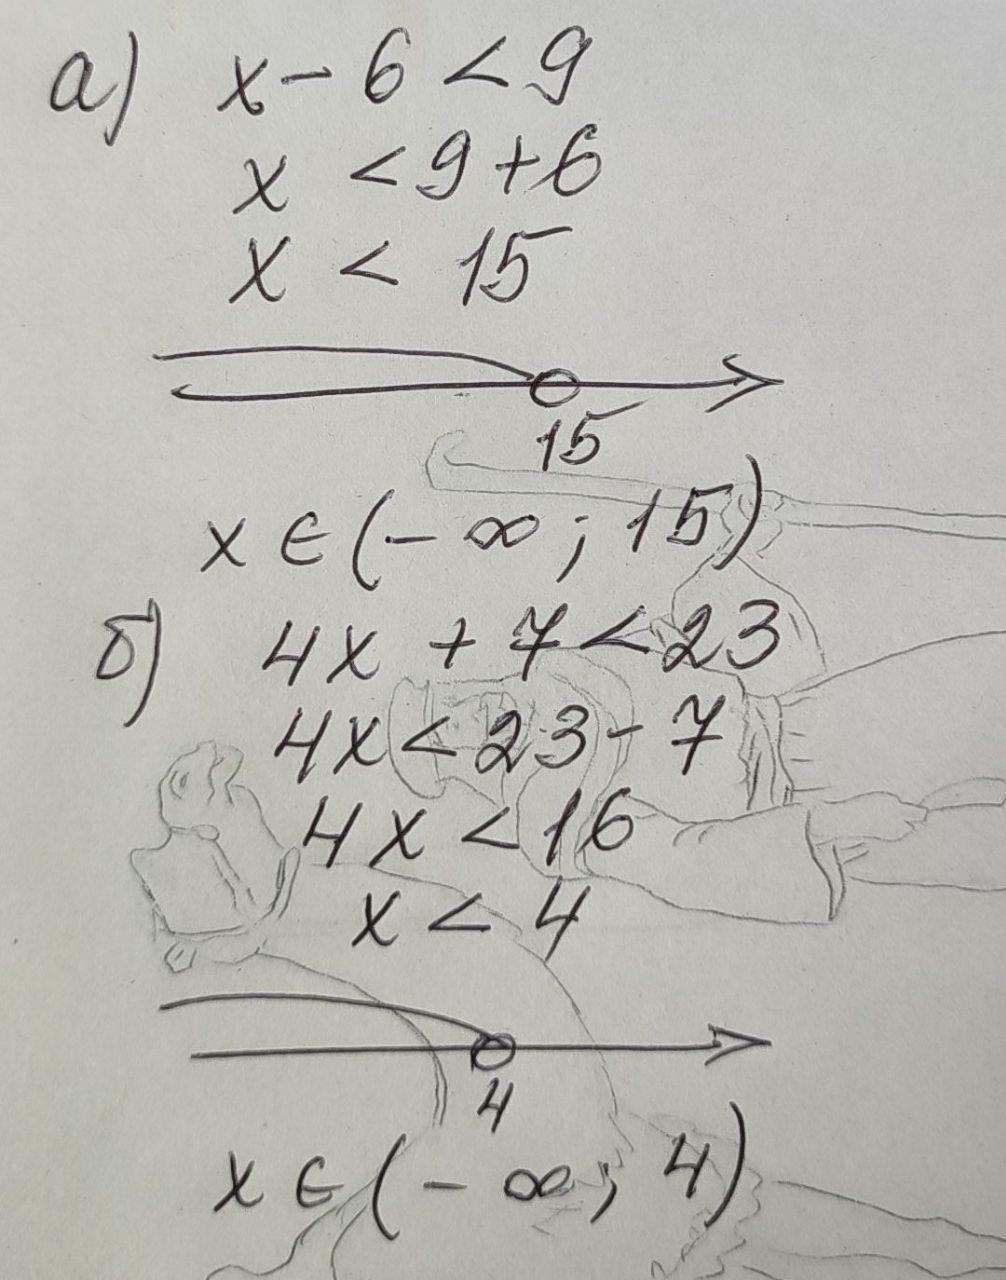 а) x - 6 < 9
x < 9 + 6
x < 15
15
x ∈ (- ∞ ; 15)
б) 4x + 7 < 23
4x < 23 - 7
4x < 16
x < 4
4
x ∈ (- ∞ ; 4)